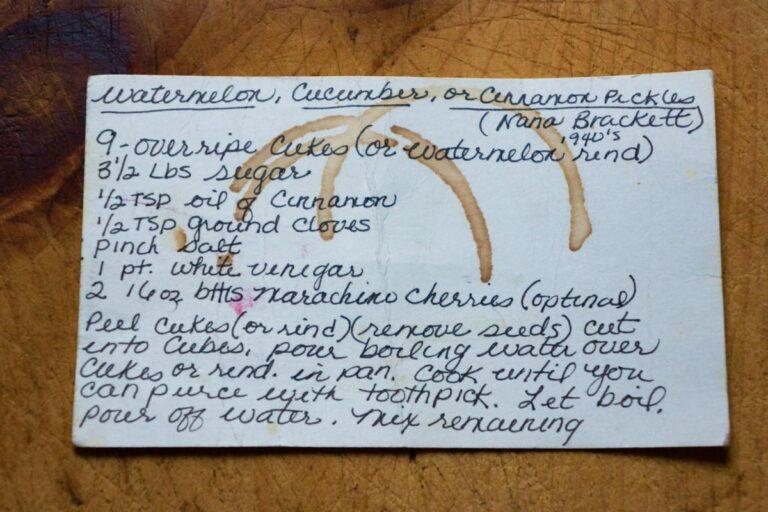 Watermelon, Cucumber, or Cinnamon Pickles
(Nana Brackett)
940's
9-overripe Cukes (or watermelon rind)
3 1/2 Lbs sugar
1/2 TSP oil of Cinnamon
1/2 TSP ground Cloves
pinch salt
1 pt. white vinegar
2 16oz bttls Marachino Cherries (optinal)
Peel Cukes (or rind) (remove seeds) cut
into Cubes, pour boiling water over
Cukes or rind. in pan. Cook until you
can purce with toothpick. Let boil.
pour off water. Mix remaining